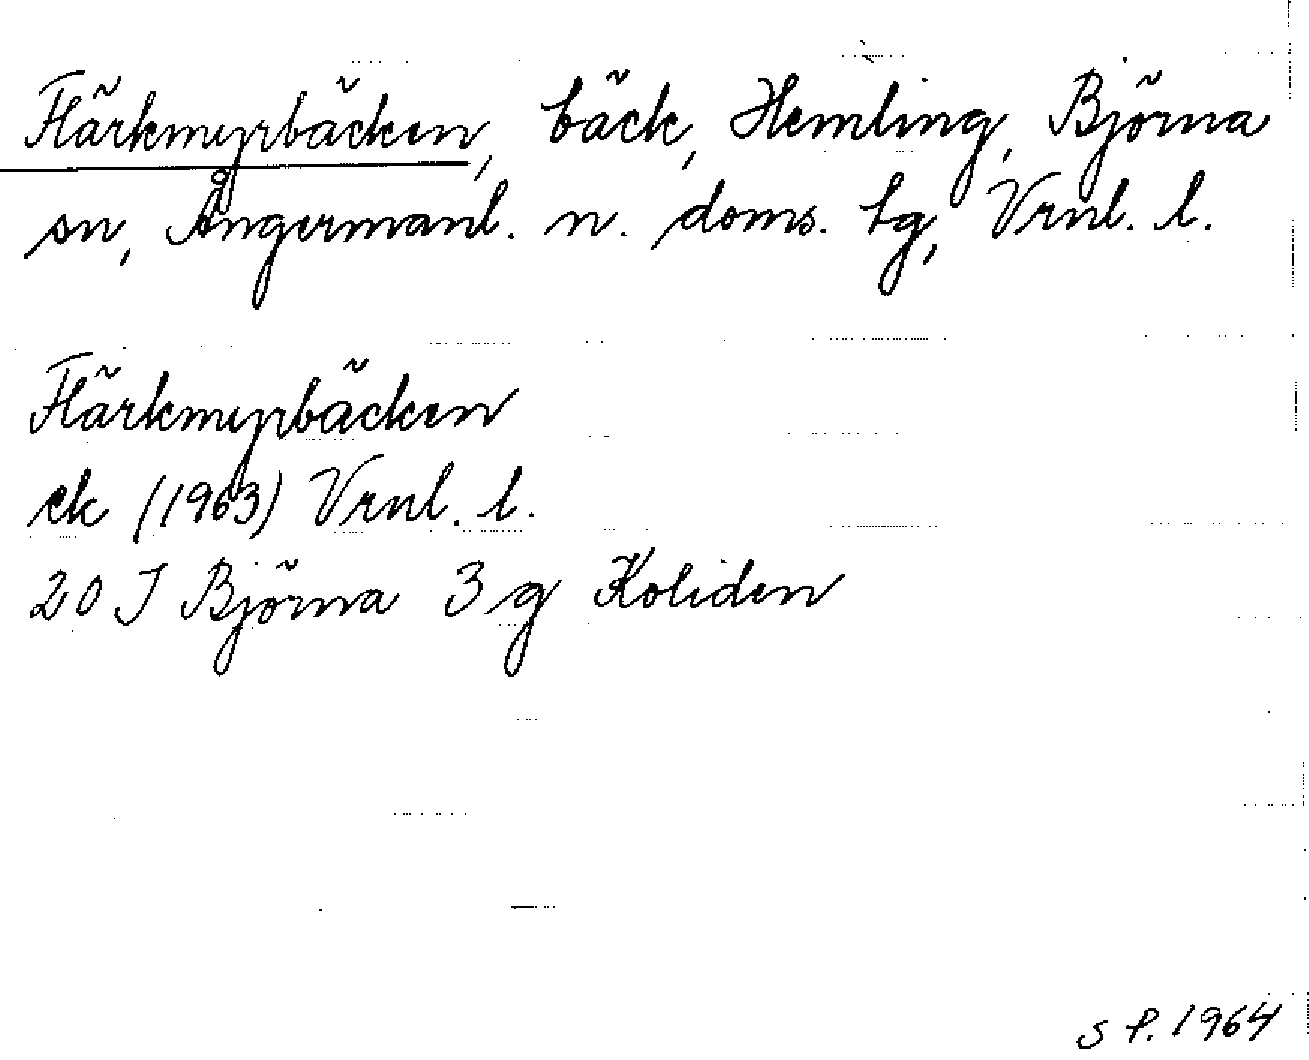 Flärkmyrbäcken, bäck, Hemling, Björna
sn, Ångermanl. n. doms. tg, Vrnl. l.
Flärkmyrbäcken
ek (1963) Vrnl. l.
20 J Björna 3 g Koliden
S P. 1964